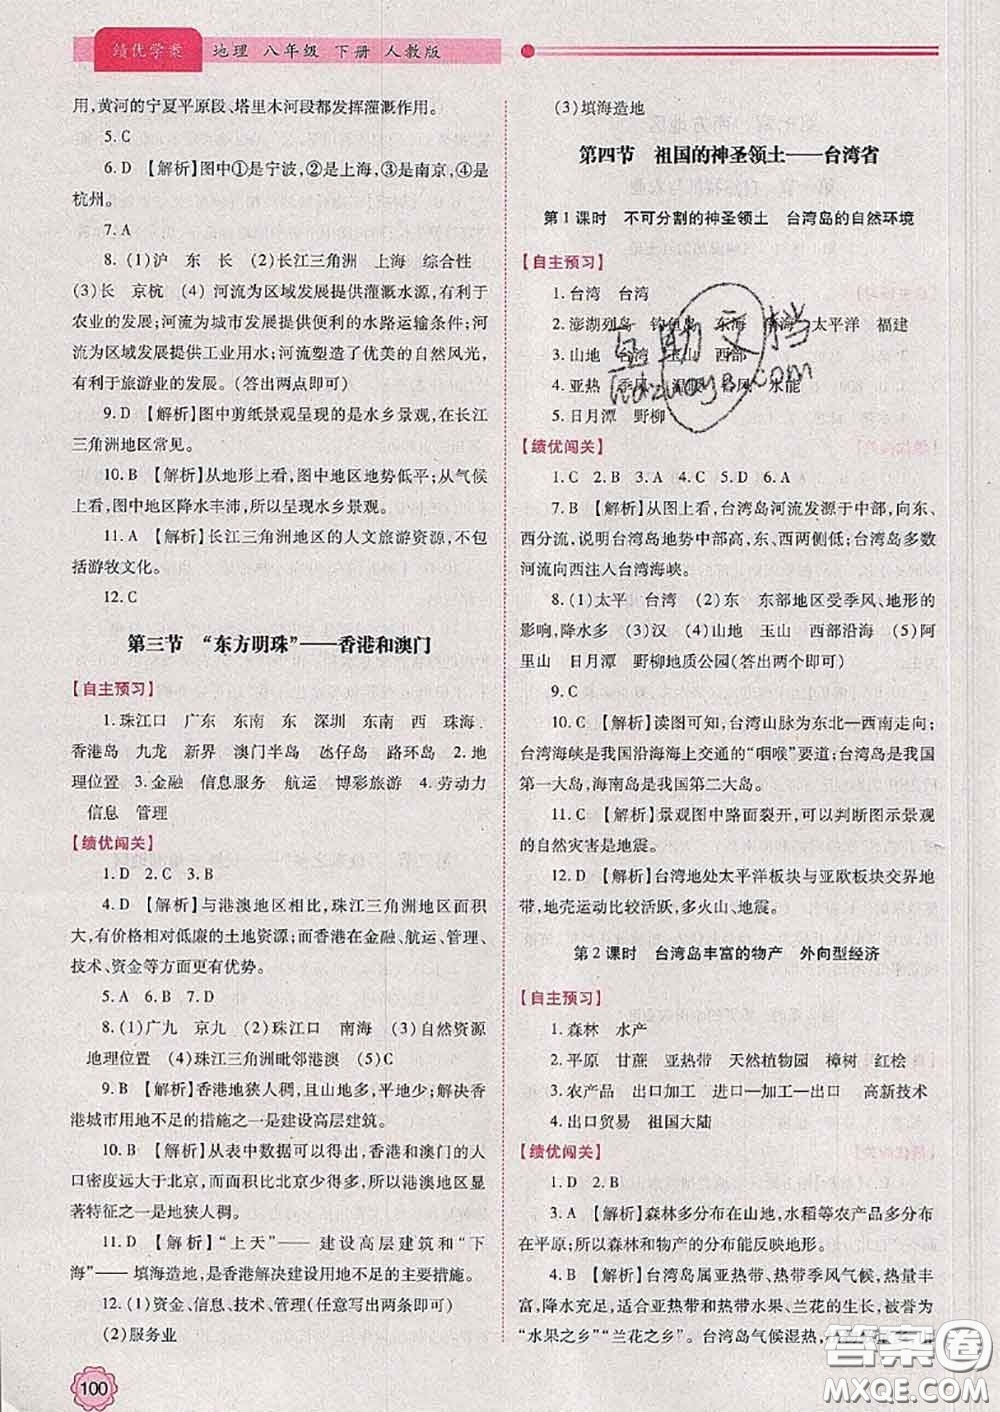 绩优学案 地理 八年级 下册 人教版
用,黄河的宁夏平原段、塔里木河段都发挥灌溉作用。
5. C
6. D 【解析】图中①是宁波,②是上海,③是南京,④是
杭州。
7. A
8. (1)沪 东 长 (2)长江三角洲 上海 综合性
(3)长 京杭 (4) 河流为区域发展提供灌溉水源,有利于
农业的发展;河流为城市发展提供便利的水路运输条件;河
流为区域发展提供工业用水;河流塑造了优美的自然风光,
有利于旅游业的发展。(答出两点即可)
9. D 【解析】图中剪纸景观呈现的是水乡景观,在长江
三角洲地区常见。
10. B 【解析】从地形上看,图中地区地势低平;从气候
上看,图中地区降水丰沛,所以呈现水乡景观。
11. A 【解析】长江三角洲地区的人文旅游资源,不包
括游牧文化。
12. C
第三节 “东方明珠”——香港和澳门
【自主预习】
1. 珠江口 广东 东南 东 深圳 东南 西 珠海
香港岛 九龙 新界 澳门半岛 氹仔岛 路环岛 2. 地
理位置 3. 金融 信息服务 航运 博彩旅游 4. 劳动力
信息 管理
【绩优闯关】
1. D 2. C 3. B
4. D 【解析】与港澳地区相比,珠江三角洲地区面积
大,有价格相对低廉的土地资源;而香港在金融、航运、管理、
技术、资金等方面更有优势。
5. A 6. B 7. D
8. (1)广九 京九 (2)珠江口 南海 (3)自然资源
地理位置 (4)珠江三角洲毗邻港澳 (5)C
9. B 【解析】香港地狭人稠,且山地多,平地少;解决香
港城市用地不足的措施之一是建设高层建筑。
10. B 【解析】从表中数据可以得出,香港和澳门的人
口密度远大于北京,而面积比北京少得多,所以港澳地区显
著特征之一是地狭人稠。
11. D 【解析】“上天”—— 建设高层建筑和“下
海”—— 填海造地,是香港解决建设用地不足的主要措施。
12. (1)资金、信息、技术、管理(任意写出两条即可)
(2)服务业
100
(3)填海造地
第四节 祖国的神圣领土——台湾省
第 1 课时 不可分割的神圣领土 台湾岛的自然环境
【自主预习】
1. 台湾 台湾
2. 澎湖列岛 钓鱼岛 东海 南海 太平洋 福建
3. 山地 台湾 玉山 西部
4. 亚热 季风 温暖 台风 水能
5. 日月潭 野柳
互助文档
hdzuoye.com
【绩优闯关】
1. C 2. B 3. A 4. C 5. D 6. A
7. B 【解析】从图上看,台湾岛河流发源于中部,向东、
西分流,说明台湾岛地势中部高,东、西两侧低;台湾岛多数
河流向西注入台湾海峡。
8. (1)太平 台湾 (2)东 东部地区受季风、地形的
影响,降水多 (3)汉 (4)山地 玉山 西部沿海 (5)阿
里山 日月潭 野柳地质公园(答出两个即可)
9. C
10. C 【解析】读图可知,台湾山脉为东北—西南走向;
台湾海峡是我国沿海海上交通的“咽喉”要道;台湾岛是我国
第一大岛,海南岛是我国第二大岛。
11. C 【解析】景观图中路面裂开,可以判断图示景观
的自然灾害是地震。
12. D 【解析】台湾地处太平洋板块与亚欧板块交界地
带,地壳运动比较活跃,多火山、地震。
第 2 课时 台湾岛丰富的物产 外向型经济
【自主预习】
1. 森林 水产
2. 平原 甘蔗 亚热带 天然植物园 樟树 红桧
3. 农产品 出口加工 进口—加工—出口 高新技术
4. 出口贸易 祖国大陆
【绩优闯关】
1. D 2. B
3. A 【解析】森林多分布在山地,水稻等农产品多分布
在平原;所以森林和物产的分布能反映地形。
4. B 【解析】台湾岛属亚热带、热带季风气候,热量丰
富,降水充足,适合亚热带和热带水果、兰花的生长,被誉为
“水果之乡”“兰花之乡”。台湾岛气候湿热,
答案圈
MXQE.COM